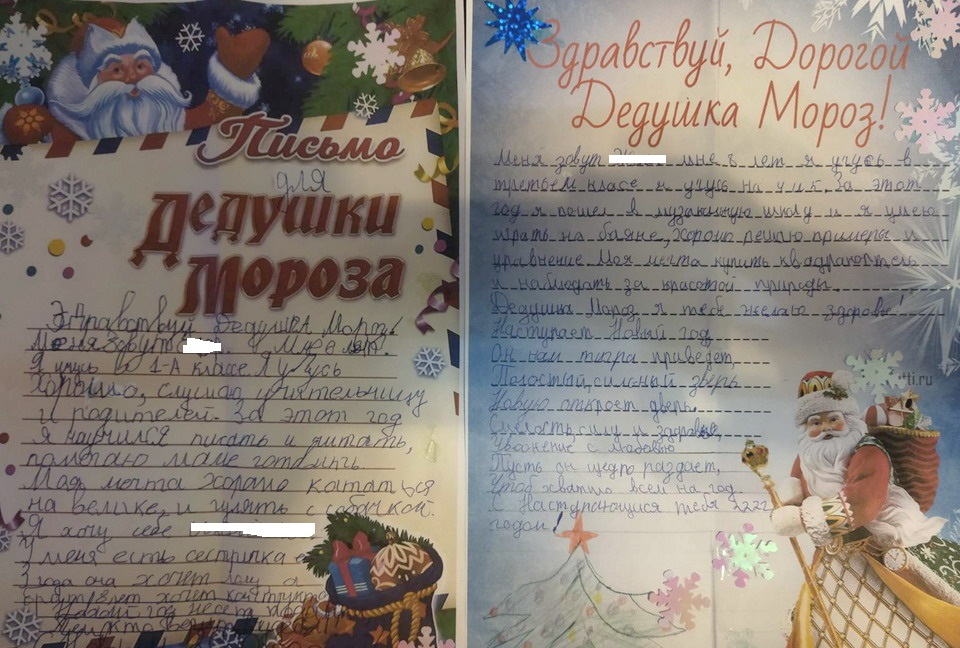 Письмо
для
Дедушки
Мороза
Здравствуй Дедушка Мороз!
Меня зовут
Я учусь во 1-А классе Я учусь
хорошо, слушаю учительницу
и родителей. За этот год
я научился писать и читать,
помогаю маме готовить.
Моя мечта хорошо кататься
на велике, и гулять с собачкой.
Я хочу себе
У меня есть сестричка
3 года она хочет
хочет
Новый год несёт
Здравствуй, Дорогой
Дедушка Мороз!
Меня зовут мне 8 лет я учусь в
третьем класе и учусь на За этот
год я пошел в музыкальную школу и я умею
играть на баяне, хорошо решаю примеры и
уравнение Моя мечта купить квадракоптель
и наблюдать за красотой природы.
Дедушка Мороз я тебе желаю здоровье!
Наступает Новый год
Он нам тигра приведет,
Полостый, сильный зверь
Новую откроет дверь.
Смелость, силу и здоровье,
Уважение с любовью
Пусть он щедро раздает,
Чтоб хватило всем на год
С Наступающися тебя 2222
годом!
ti.ru